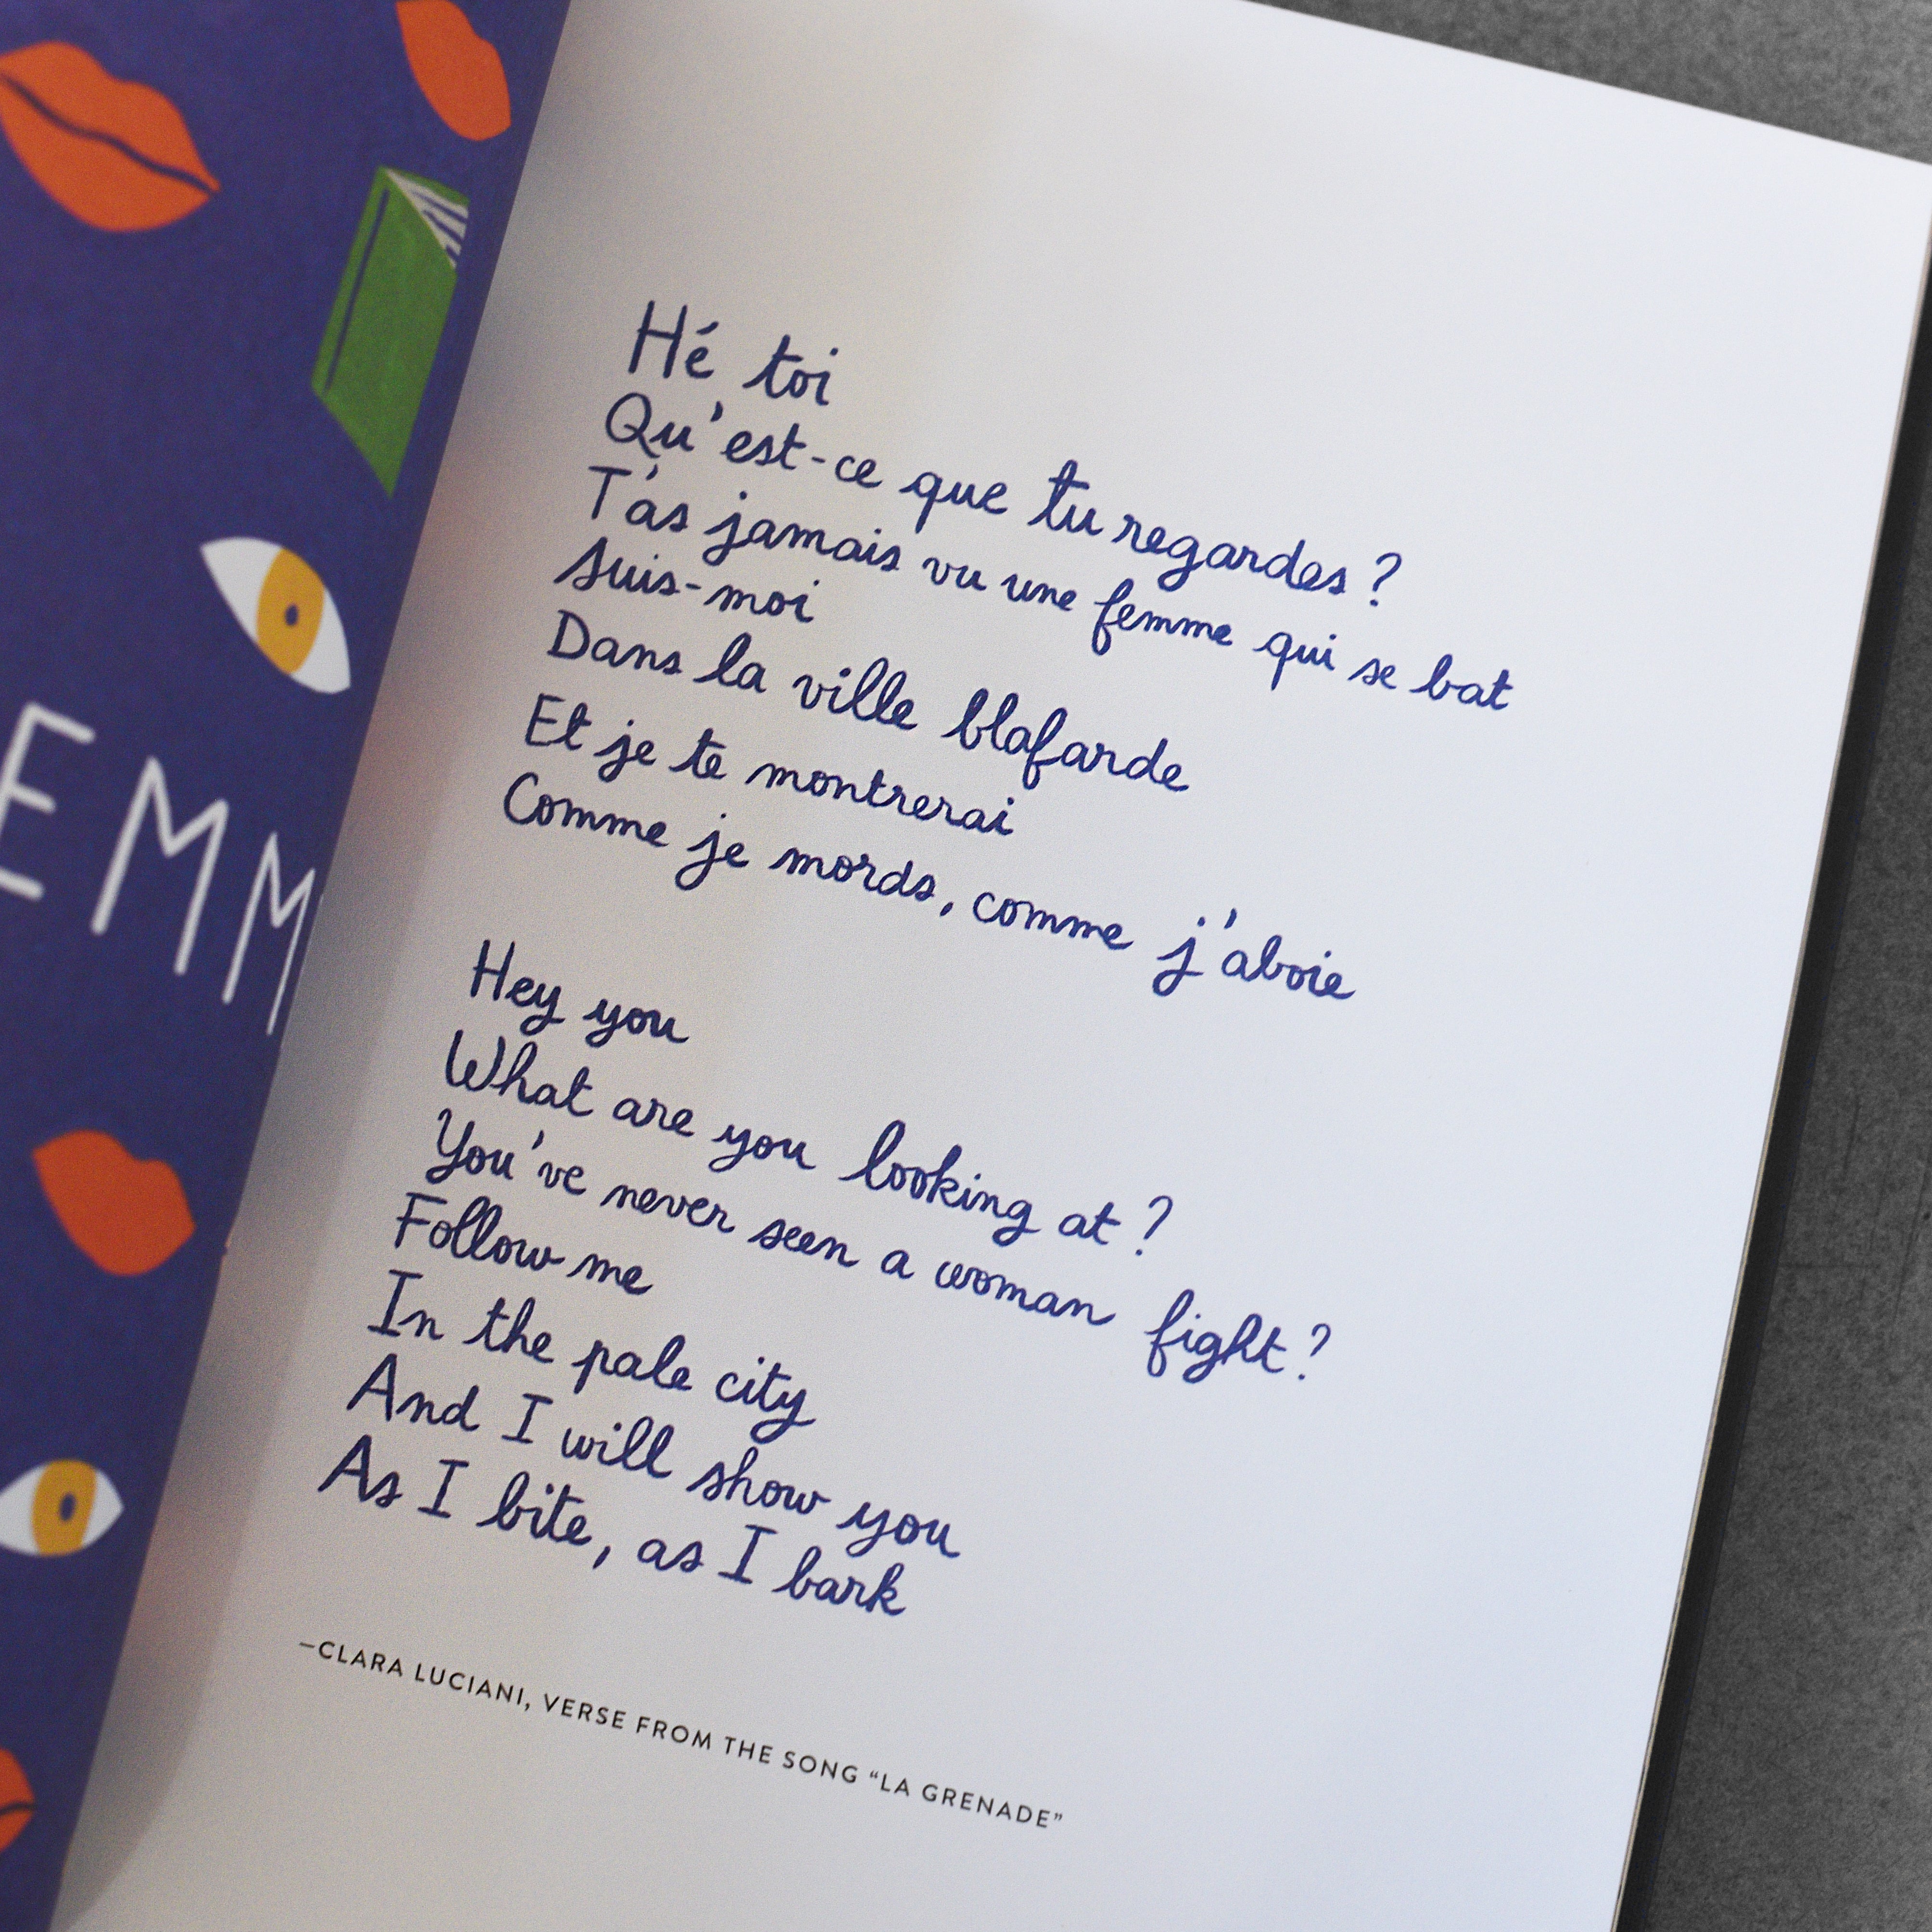 EMM
Hé toi
Qu'est-ce que tu regardes ?
T'as jamais vu une femme qui se bat
Suis-moi
Dans la ville blafarde
Et je te montrerai
Comme je mords, comme j'aboie
Hey you
What are you looking at ?
You've never seen a woman fight ?
Follow me
In the pale city
And I will show you
As I bite, as I bark
—CLARA LUCIANI, VERSE FROM THE SONG “LA GRENADE”